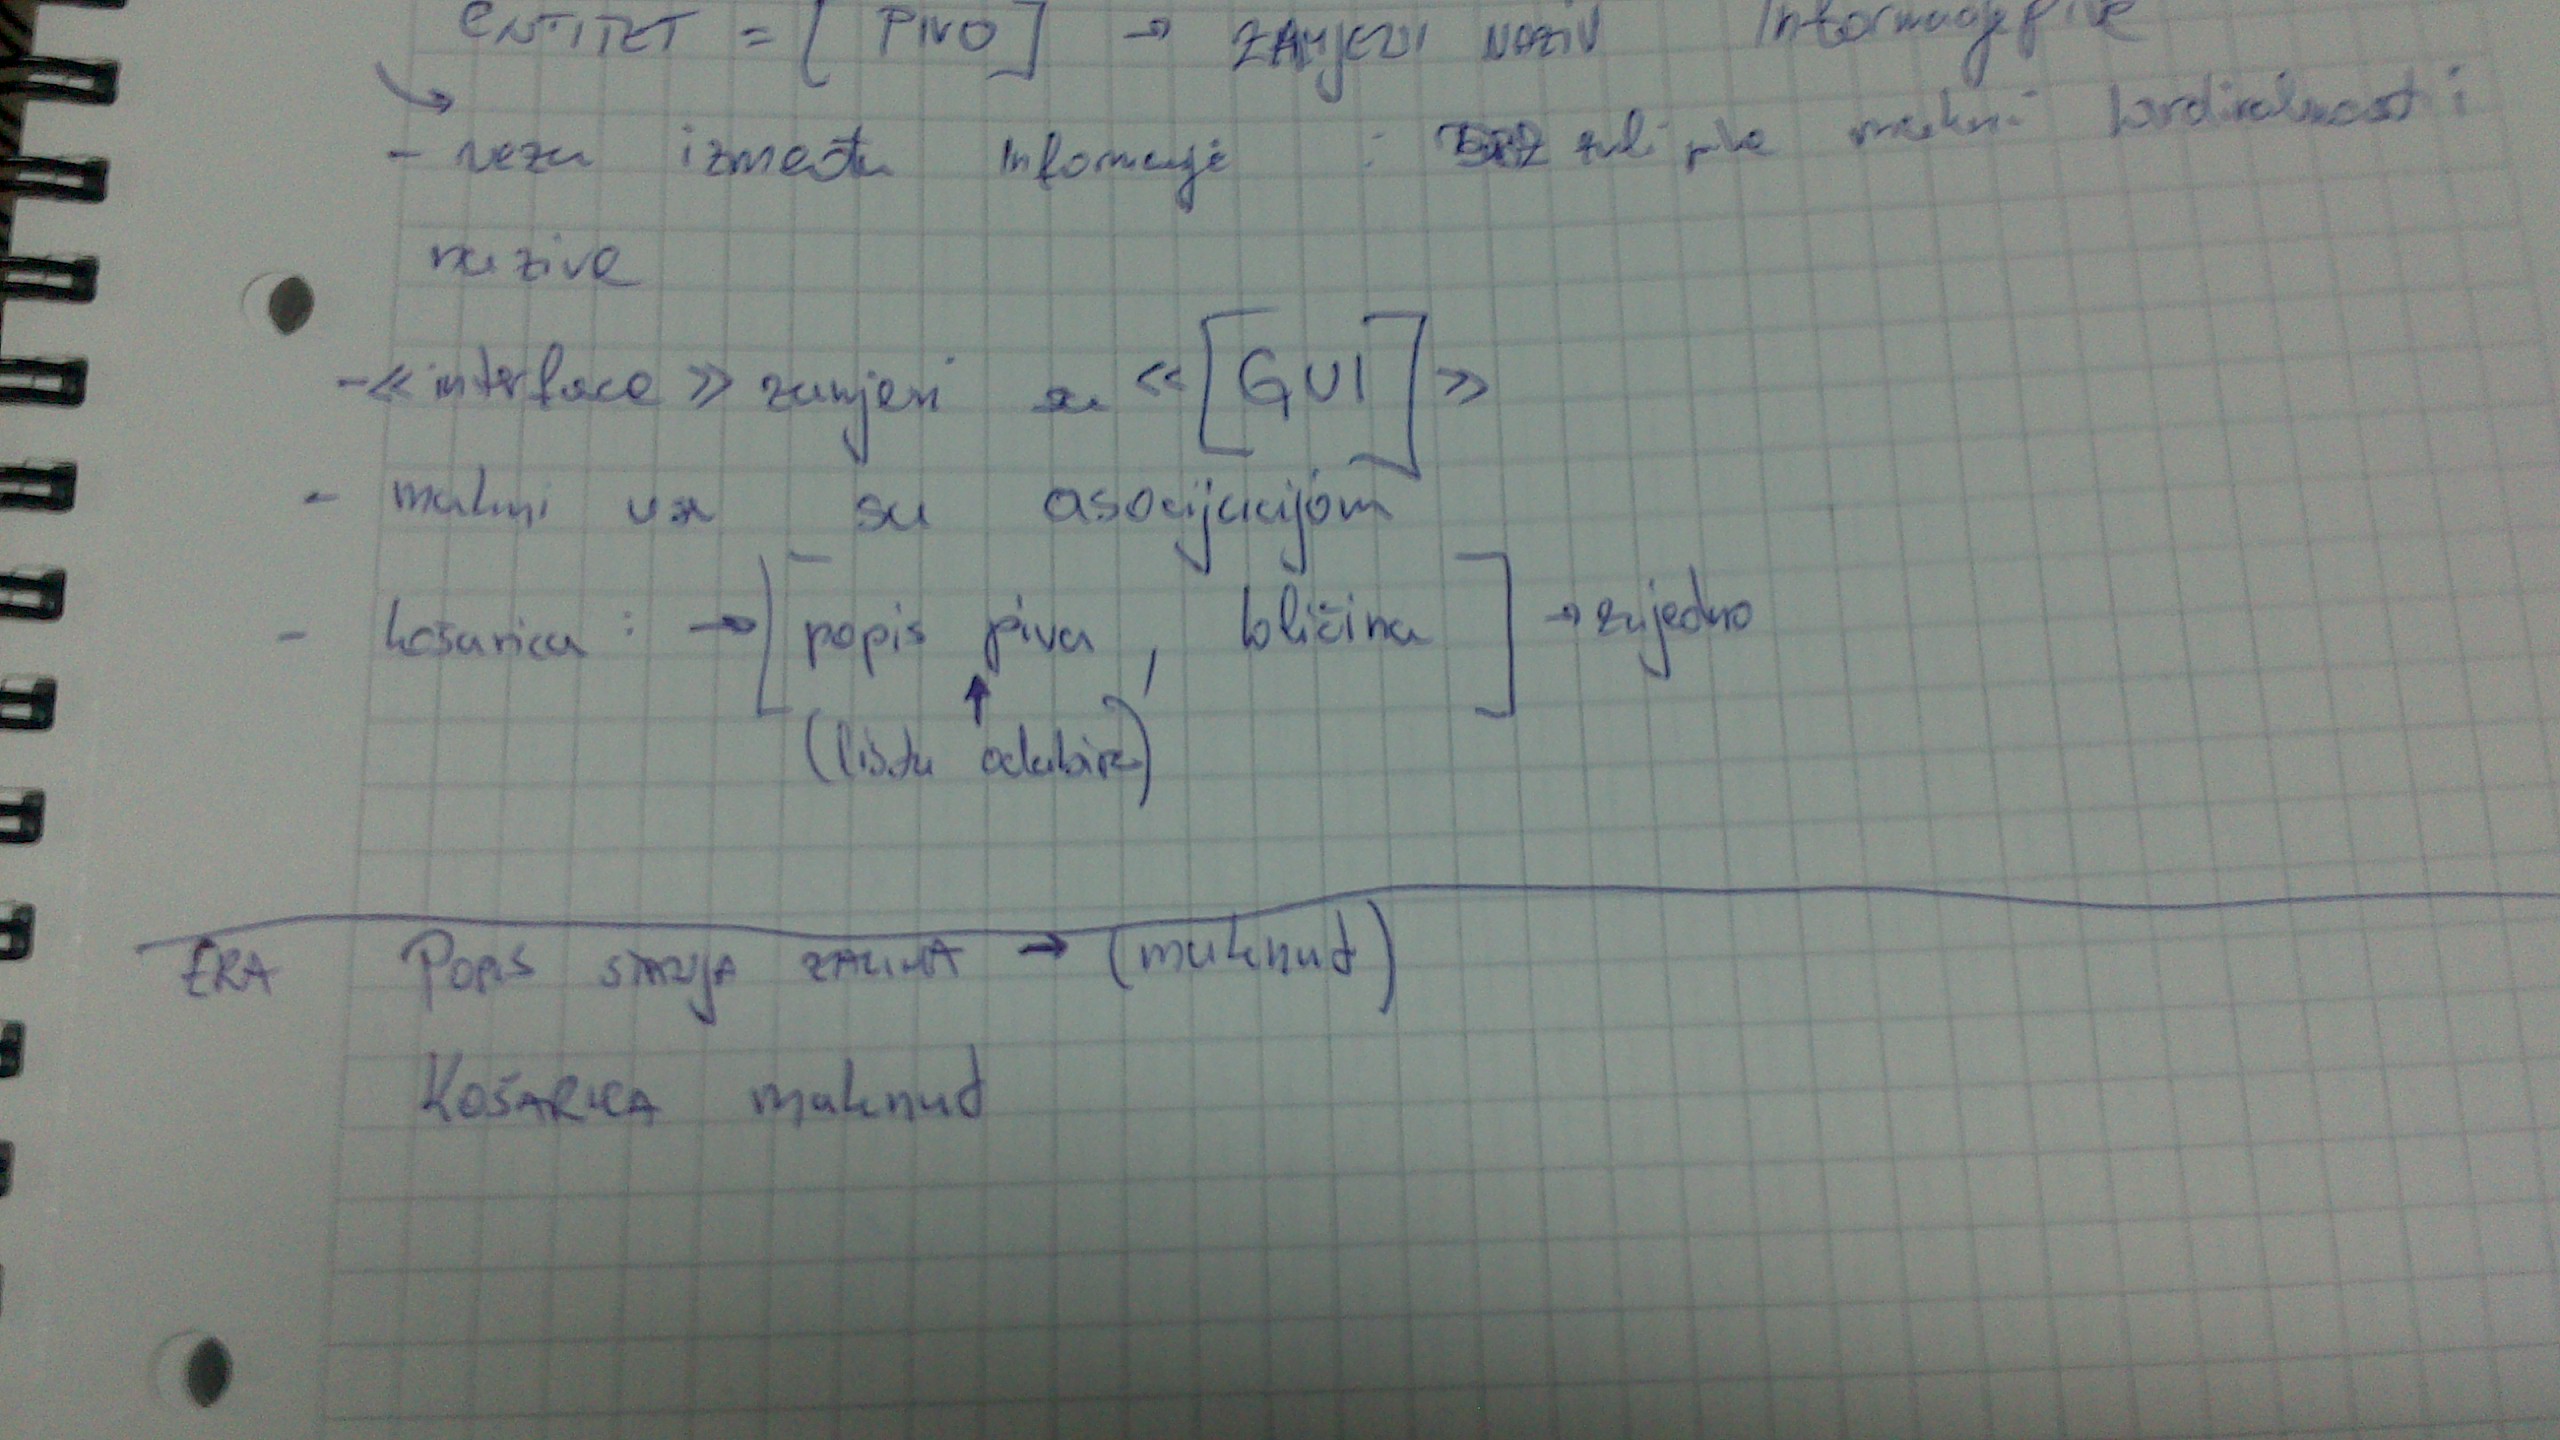 ENTITET = [PIVO] → ZAMJENI NAZIV Informacije piva
- veza između Informacije : piva makni kardinalnost i
nazive
- «interface» zamjeni sa «[GUI]»
- makni vezu sa asocijacijom
- košarica : → [popis piva, količina] → zajedno
(lista odabira)
ERA POPIS STANJA ZALIHA → (maknut)
KOŠARICA maknut